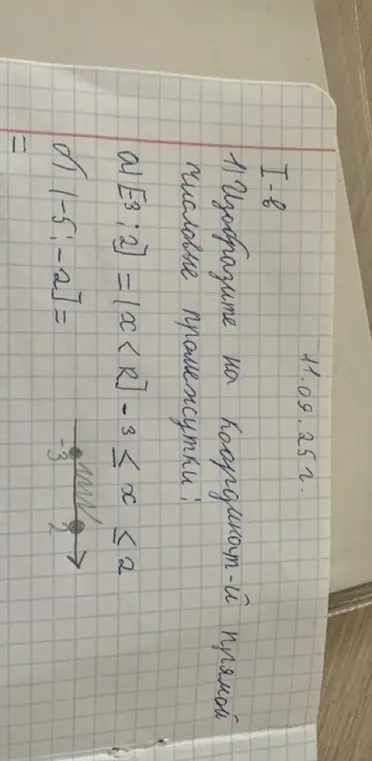 11.09.25 г.
I-в
1) Изобразите на координат-й прямой
числовые промежутки:
а) [-3; 2] = {x < R] -3 ≤ x ≤ 2
-3 2
б) (-5; -2] =
=